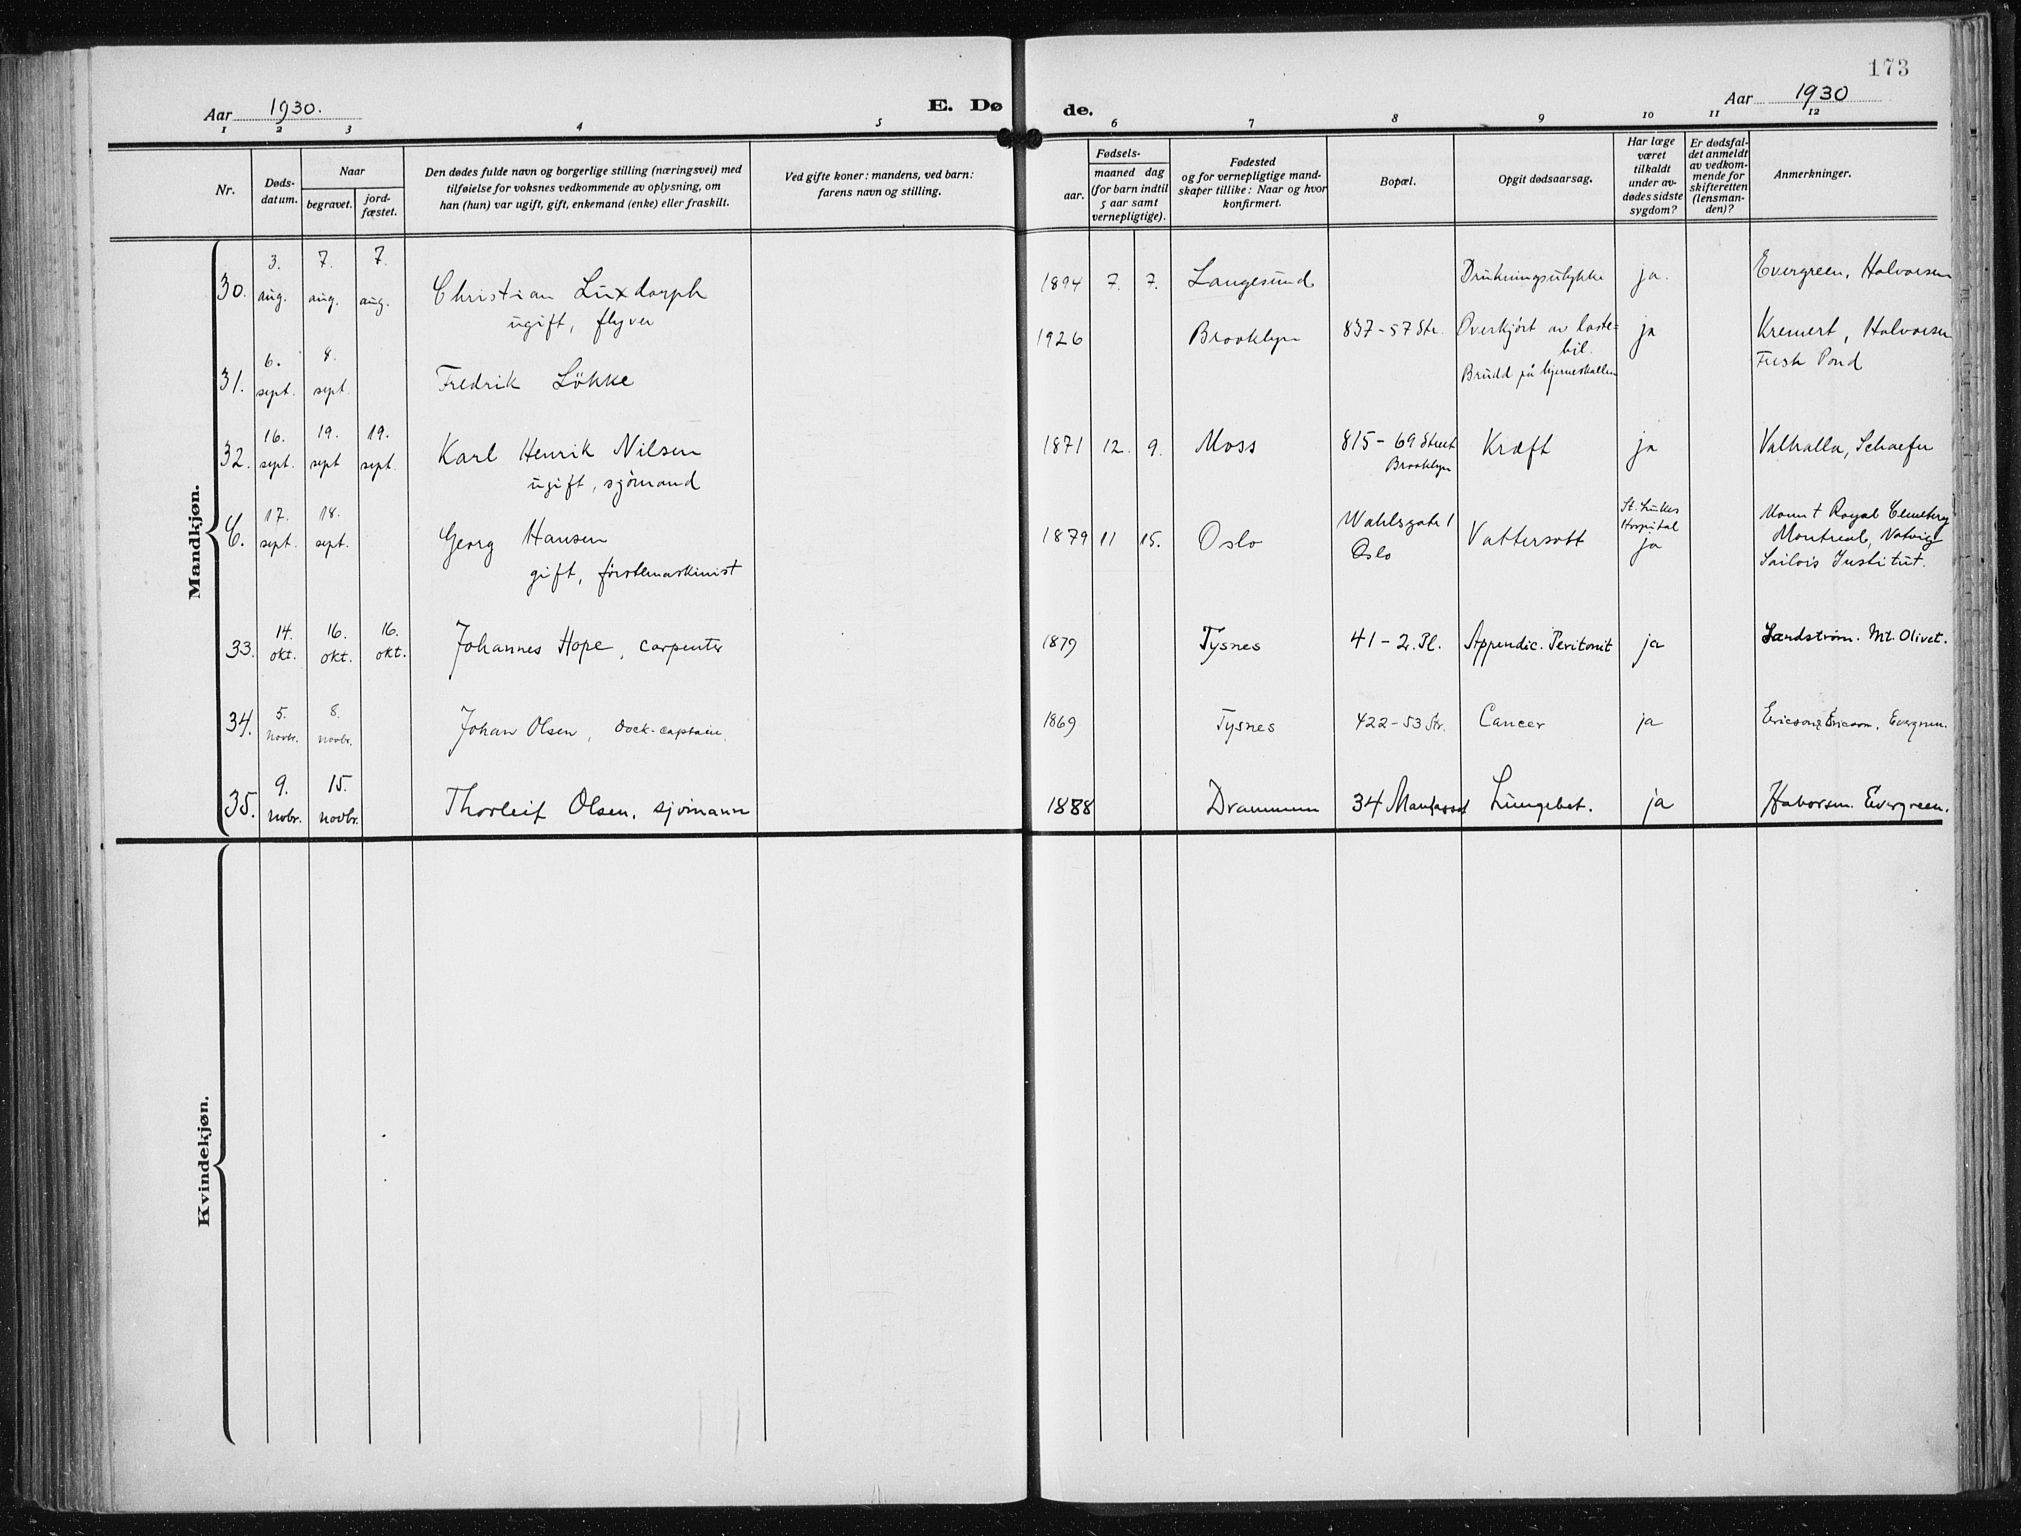 173
Aar 1930.
E. Dø de.
Aar 1930
1 2 3 4 5 6 7 8 9 10 11 12
Nr.
Døds-
datum.
Naar
begravet.
jord-
fæstet.
Den dødes fulde navn og borgerlige stilling (næringsvei) med
tilføielse for voksnes vedkommende av oplysning, om
han (hun) var ugift, gift, enkemand (enke) eller fraskilt.
Ved gifte koner: mandens, ved barn:
farens navn og stilling.
Fødsels-
aar.
maaned dag
(for barn indtil
5 aar samt
vernepligtige).
Fødested
og for vernepligtige mand-
skaper tillike: Naar og hvor
konfirmert.
Bopæl.
Opgit dødsaarsag.
Har læge
været
tilkaldt
under av-
dødes sidste
sygdom?
Er dødsfal-
det anmeldt
av vedkom-
mende for
skifteretten
(lensman-
den)?
Anmerkninger.
Mandkjøn.
3. 7. 7.
30. aug. aug. aug. Christian Luxdorph 1894 7. 7. Langesund Drukningsulykke ja. Evergreen, Halvorsen
ugift, flyver
6. 8.
31. sept. sept. Fredrik Løkke 1926 Brooklyn 837-57 Str. Overkjørt av laste=
bil.
Brudd på hjerneskallen
ja
Kremert, Halvorsen
Fresh Pond
16. 19. 19.
32. sept. sept sept. Karl Henrik Nilsen 1871 12. 9. Moss 815-69 Street Kræft ja Valhalla, Schaefer
ugift, sjømand Brooklyn
17. 18.
6. sept. sept. Georg Hansen 1879 11 15. Oslo Wahlsgate 1
Oslo
Vattersott
St. Lukes
Hospital
ja
Mount Royal Cemetery
Montreal,
Sailors Institut.
gift, førstemaskinist
14. 16. 16.
33. okt. okt. okt. Johannes Hope, carpenter 1879 Tysnes 41-2. Pl. Appendic. Peritonit ja Sandstrøm. Mt. Olivet.
5. 8.
34. novbr. novbr. Johan Olsen, dock-captain. 1869 Tysnes 422-53 Str. Cancer ja Ericson & Ericson, Evergreen.
9. 15.
35. novbr. novbr. Thorleif Olsen, sjømann 1888 Drammen 34 Lungebet. ja Evergreen.
Kvindekjøn.